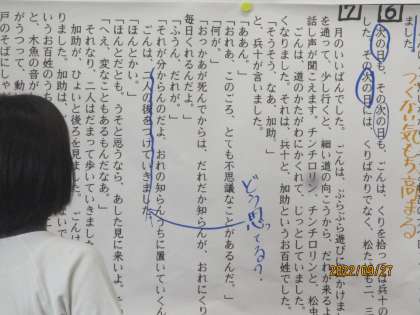 7 6
ました。
次の日も、その次の日も、ごんは、くりを拾っては兵十の
した。その次の日には、くりばかりでなく、松たけも二、三
つぐない気もち高まる
月のいいばんでした。ごんは、ぶらぶら遊びに出かけま
を通って、少し行くと、細い道の向こうから、だれか来るよ
話し声が聞こえます。チンチロリン、チンチロリンと、松虫
ごんは、道のかたがわにかくれて、じっとしていました。
くなりました。それは、兵十と、加助というお百姓でした。
「そうそう、なあ、加助。」
と、兵十が言いました。
「ああん。」
「おれあ、このごろ、とても不思議なことがあるんだ。」
「何が。」
「おっかあが死んでからは、だれだか知らんが、おれにくり
毎日くれるんだよ。」
「ふうん、だれが。」
「それが分からんのだよ。おれの知らんうちに置いていくん
ごんは、二人の後をつけていきました。
「ほんとかい。」
「ほんとだとも。うそと思うなら、あした見に来いよ。そ
「へえ、変なこともあるもんだなあ。」
それなり、二人はだまって歩いていきました。
加助が、ひょいと後ろを見ました。ごんは
りました。加助は、
いうお百姓のうち
と、木魚の音が
がうつって、動
戸のそばにしゃ
どう思ってる?
2022/09/27